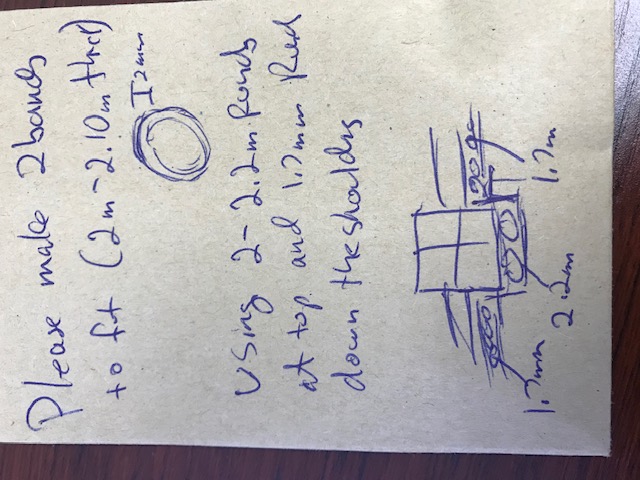 Please make 2 bands
to fit (2m-2.10m thick)
2mm
Using 2-2.2m Rounds
at top and 1.7mm Rnd
down the shoulders
1.7mm
2.2m
1.7m